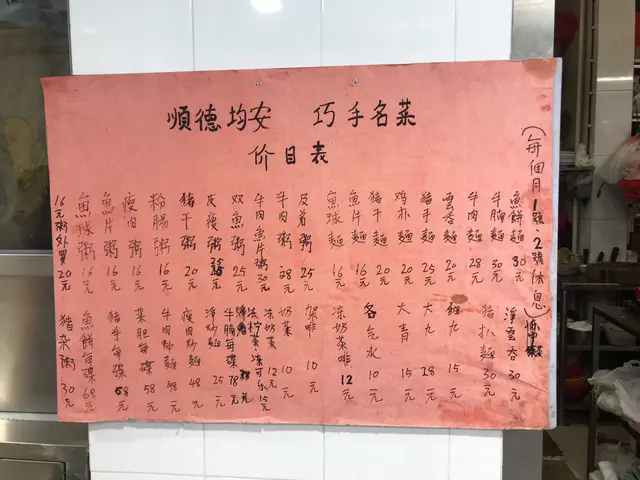 順德均安 巧手名菜
价目表
(每個月1號、2號休息)
魚餅麵 30元
牛腩麵 30元
牛肉麵 28元
雲吞麵 20元
豬手麵 25元
鸡扒麵 20元
豬干麵 20元
魚片麵 16元
魚球麵 16元
及弟粥 25元
牛肉粥 28元
牛肉魚片粥 30元
双魚粥 25元
皮瘦粥 元
豬干粥 20元
粉腸粥 16元
瘦肉粥 16元
魚片粥 16元
魚球粥 16元
16元粥外買 20元
淨雲吞 30元
豬扒麵 30元
丸 15元
大九 28元
大青 15元
各乞水 10元
冻奶茶啡 12元
架啡 10元
奶菜 10元
冻 12元
冻柠茶冻可乐 15元
牛腩每碟 78元
淨炒麵 25元
瘦肉炒麵 48元
牛肉炒麵 48元
菜胆每碟 58元
豬手每碟 58元
魚餅每碟 68元
豬杂粥 30元